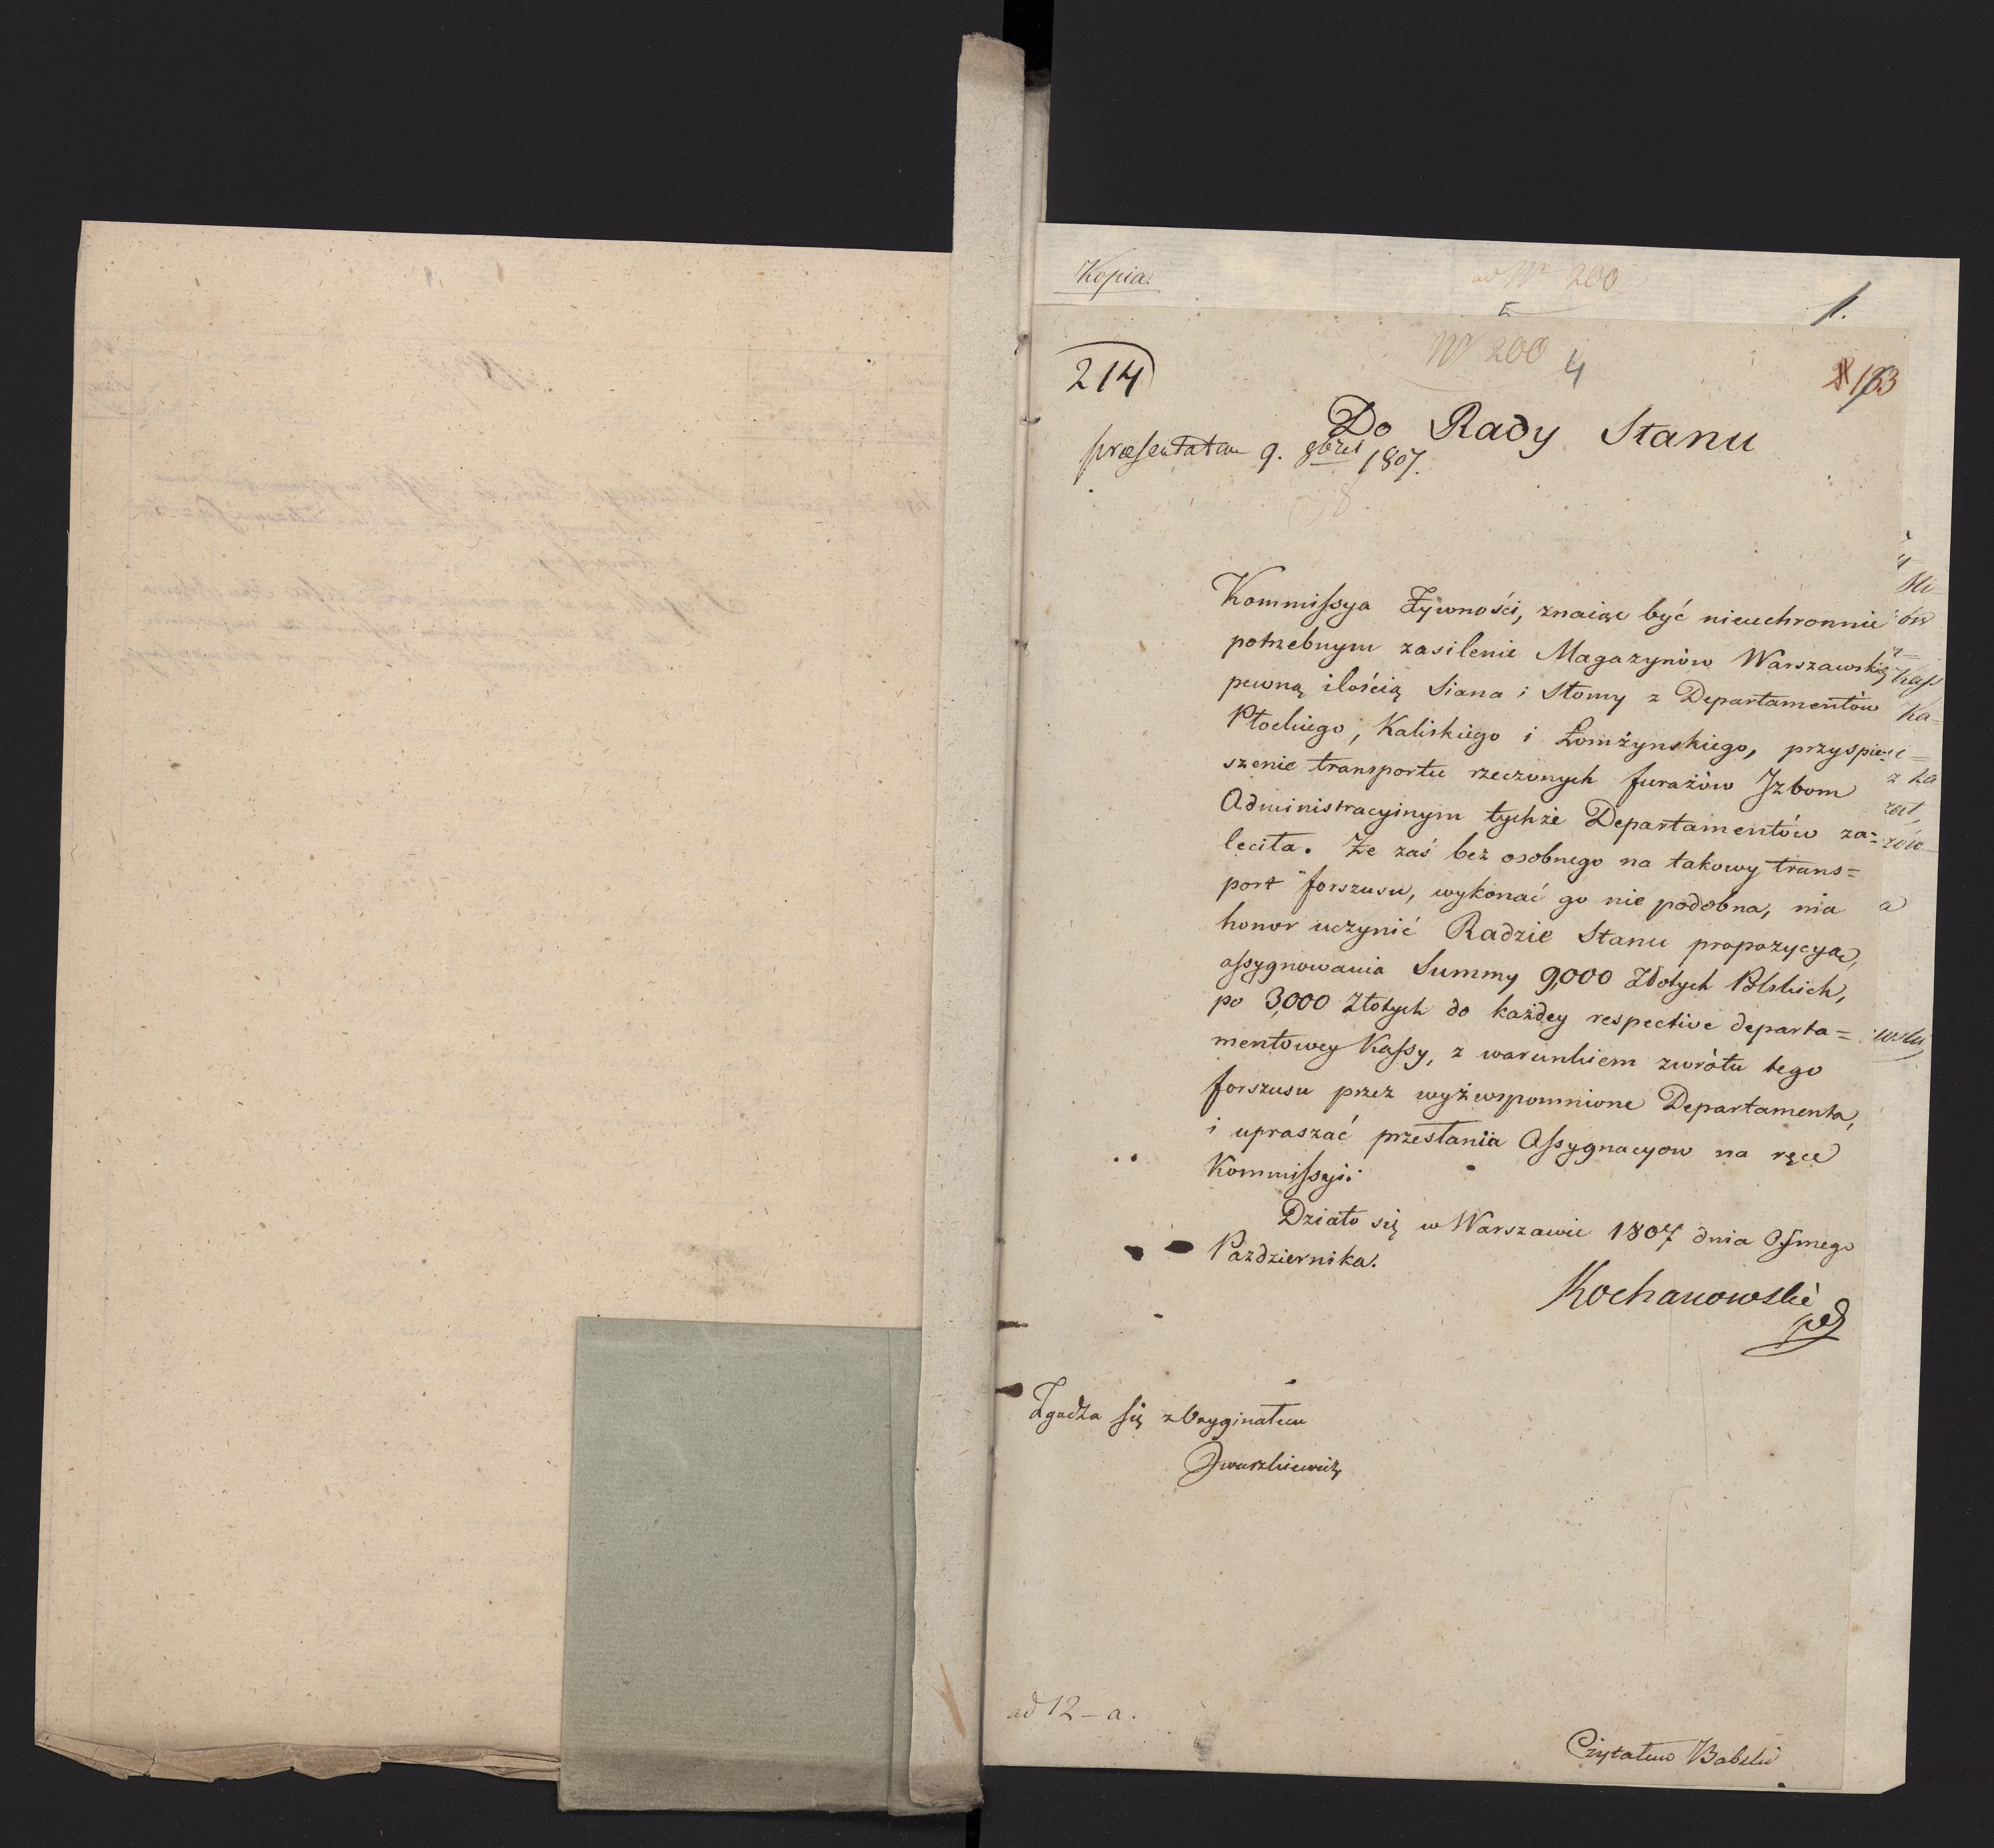 Kopia.
ad Nr 200
1.
Nr 200
4
214
183
Do Rady Stanu
præsentatum 9. 8bris 1807.
Kommissya Żywności, znaiąc być nieuchronnie
potrzebnym zasilenie Magazynów Warszawskich
pewną ilością Siana i Słomy z Departamentów
Płockiego, Kaliskiego i Łomżynskiego, przyspie-
szenie transportu rzeczonych furażów Jzbom
Administracyinym tychże Departamentów za=
leciła. Że zaś bez osobnego na takowy trans=
port forszusu, wykonać go nie podobna, ma
honor uczynić Radzie Stanu propozycyą,
assygnowania Summy 9,000 Złotych Polskich,
po 3,000 Złotych do każdey respective departa=
mentowey Kassy, z warunkiem zwrótu tego
forszusu przez wyżwspomnione Departamenta,
i upraszać przesłania Assygnacyow na ręce
Kommissyi.
Działo się w Warszawie 1807 dnia Osmego
Pazdziernika.
Kochanowski
Zgadza się z Oryginałem
ad 12-a.
Czytałem Babski